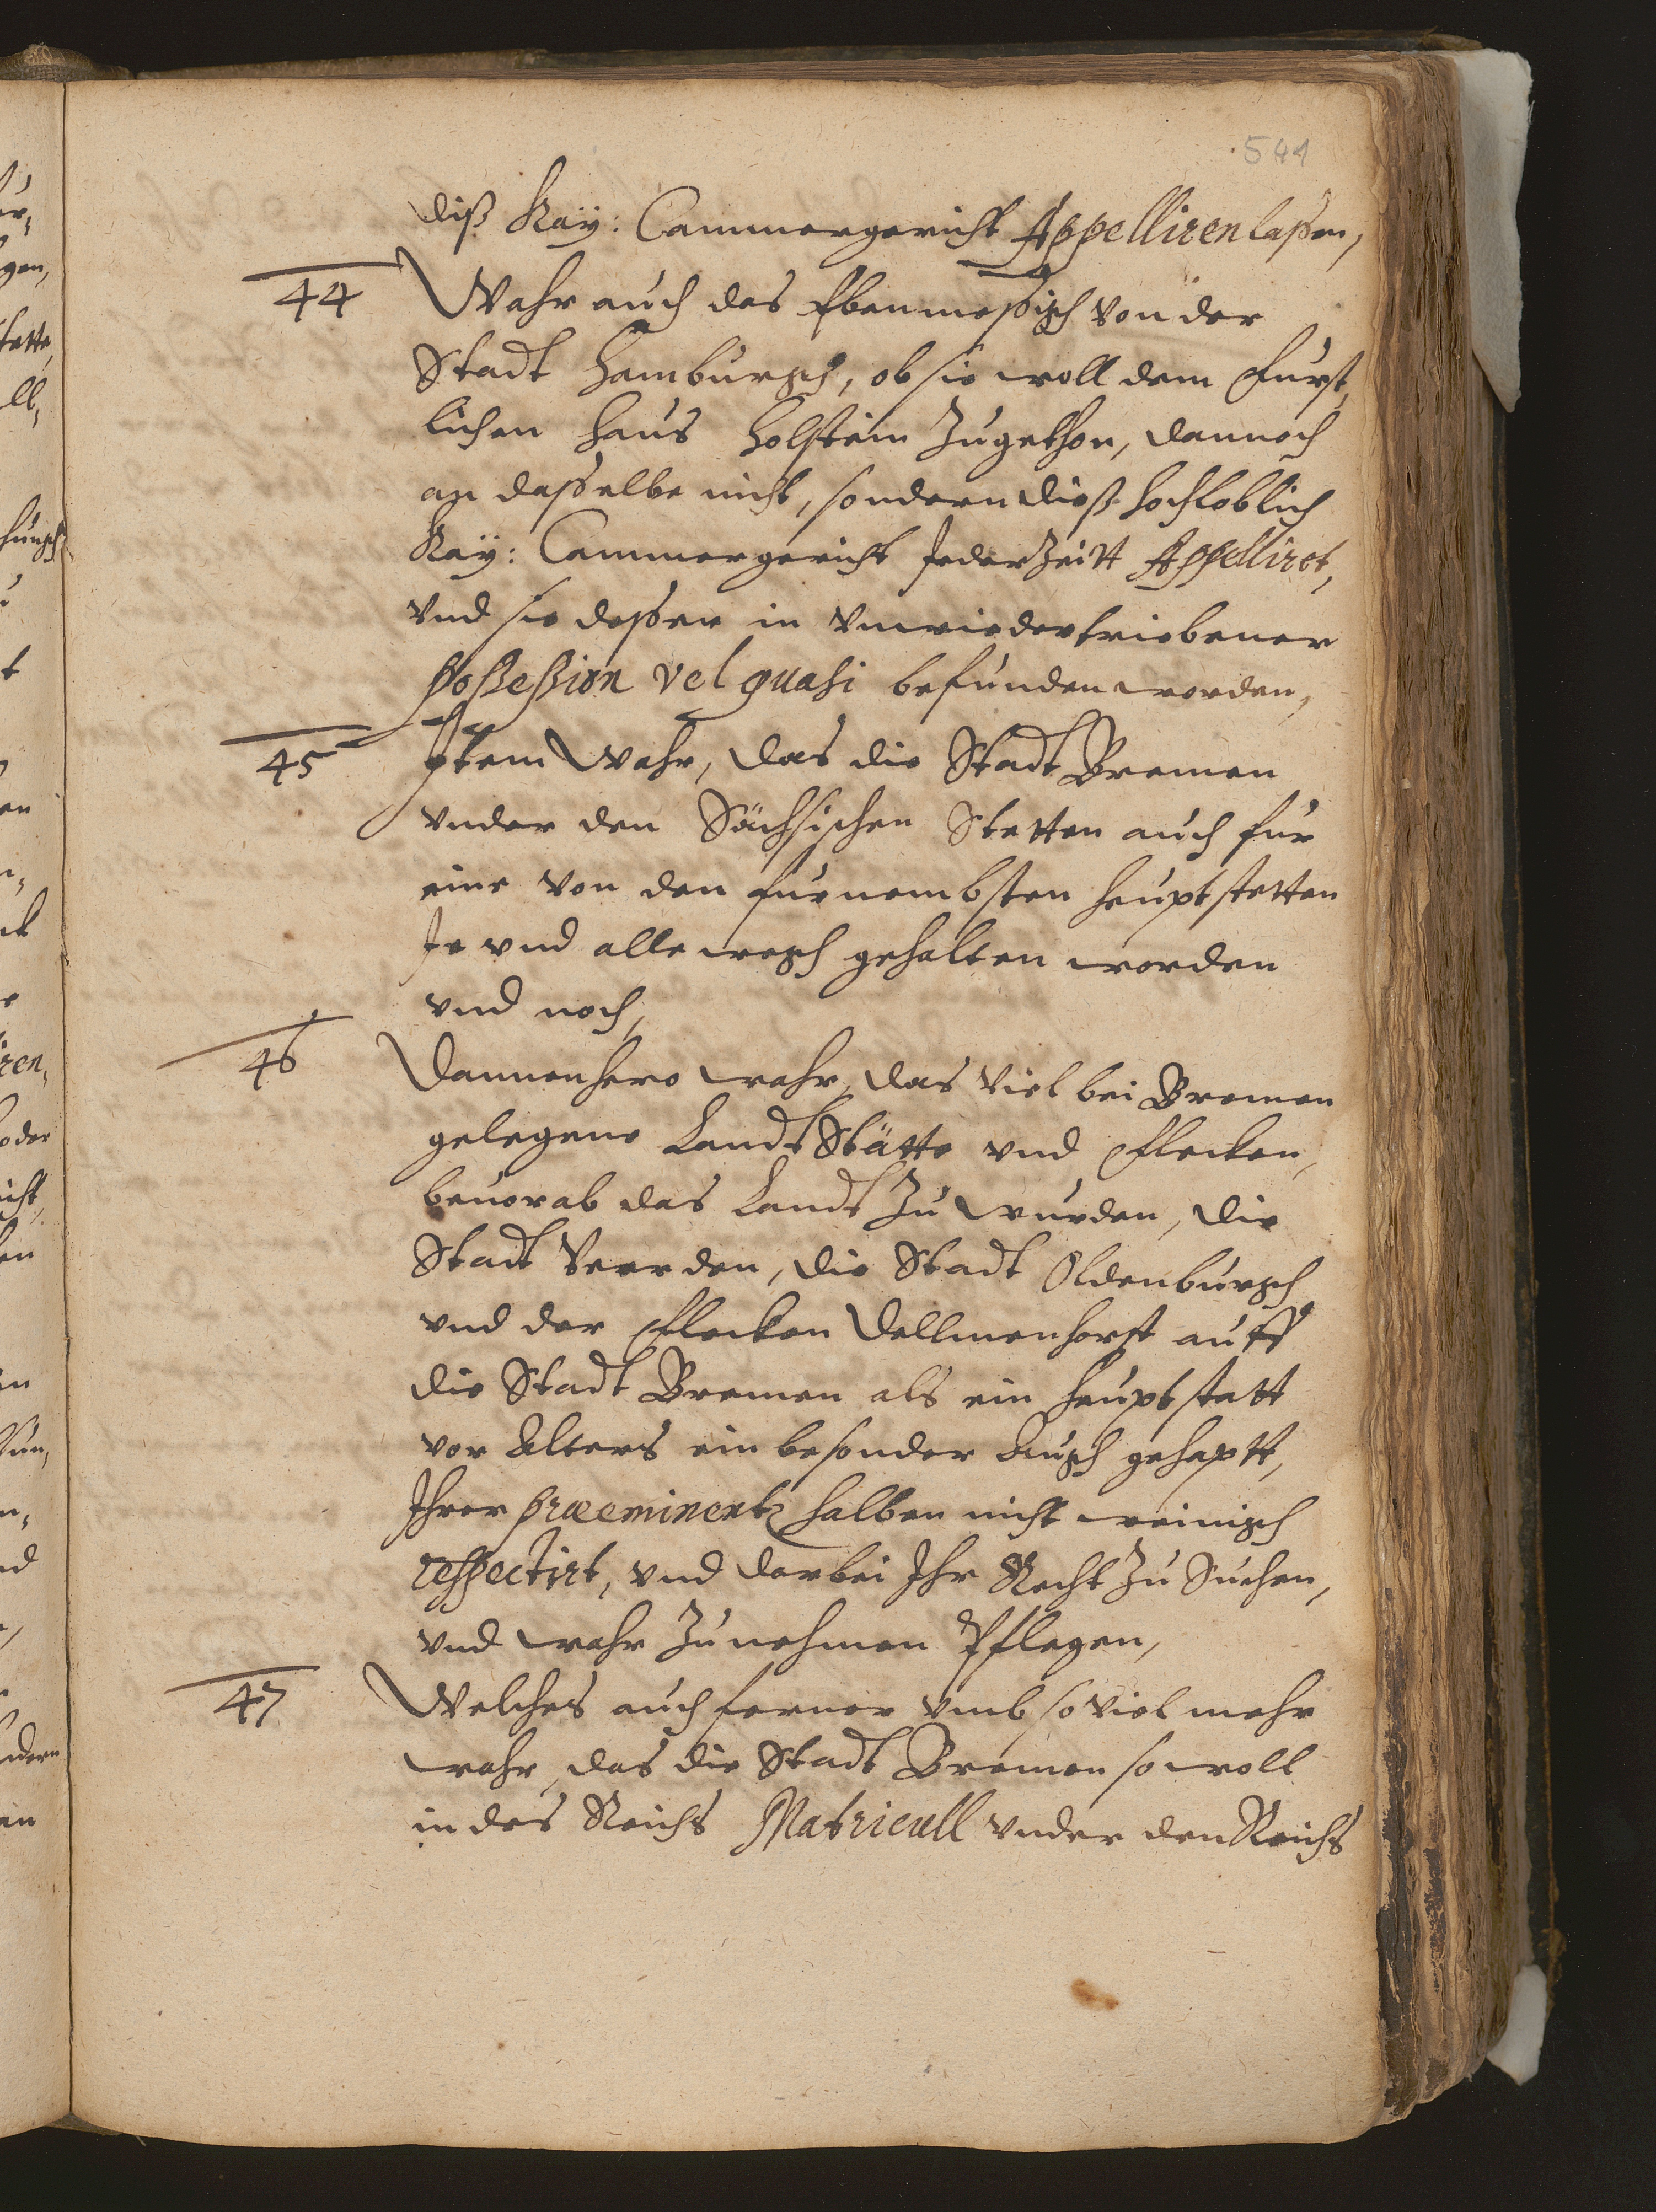 544
diß Kaÿ: Cammergericht Appelliren laßen,
44 Wahr auch das Ebenmeßigh von der
Stadt Hamburgh, ob sie woll dem Furst,
lichen Haus Holstein Zugethon, dannoch
an daßelbe nicht, sondern dieß hochloblich
Kaÿ: Cammergericht JederZeitt Appelliret,
vnd sie deßen in vnwiedertriebener
Poßeßion vel quasi befunden worden,
45 Item Wahr, das die Stadt Bremen
vnder den Sächsischen Stetten auch fur
eine von den furnembsten heuptstetten
Je vnd allewegh gehalten worden
vnd noch,
46 Dannenhero wahr, das viel bei Bremen
gelegene LandtStätte vnd Flecken,
beuorab das Landt Zu Wurden, die
Stadt Veerden, die Stadt Oldenburgh
vnd der Flecken Dellmenhorst auff
die Stadt Bremen als ein heuptstatt
vor Alters ein besonder Augh gehaptt,
Ihrer præeminentz halben nicht weinigh
respectirt, vnd darbei Ihr Recht Zu Suchen,
vnd wahr Zunehmen Pflegen,
47 Welches auch ferner vmb so viel mehr
wahr, das die Stadt Bremen so woll
in des Reichs Matricull vnder den Reichs